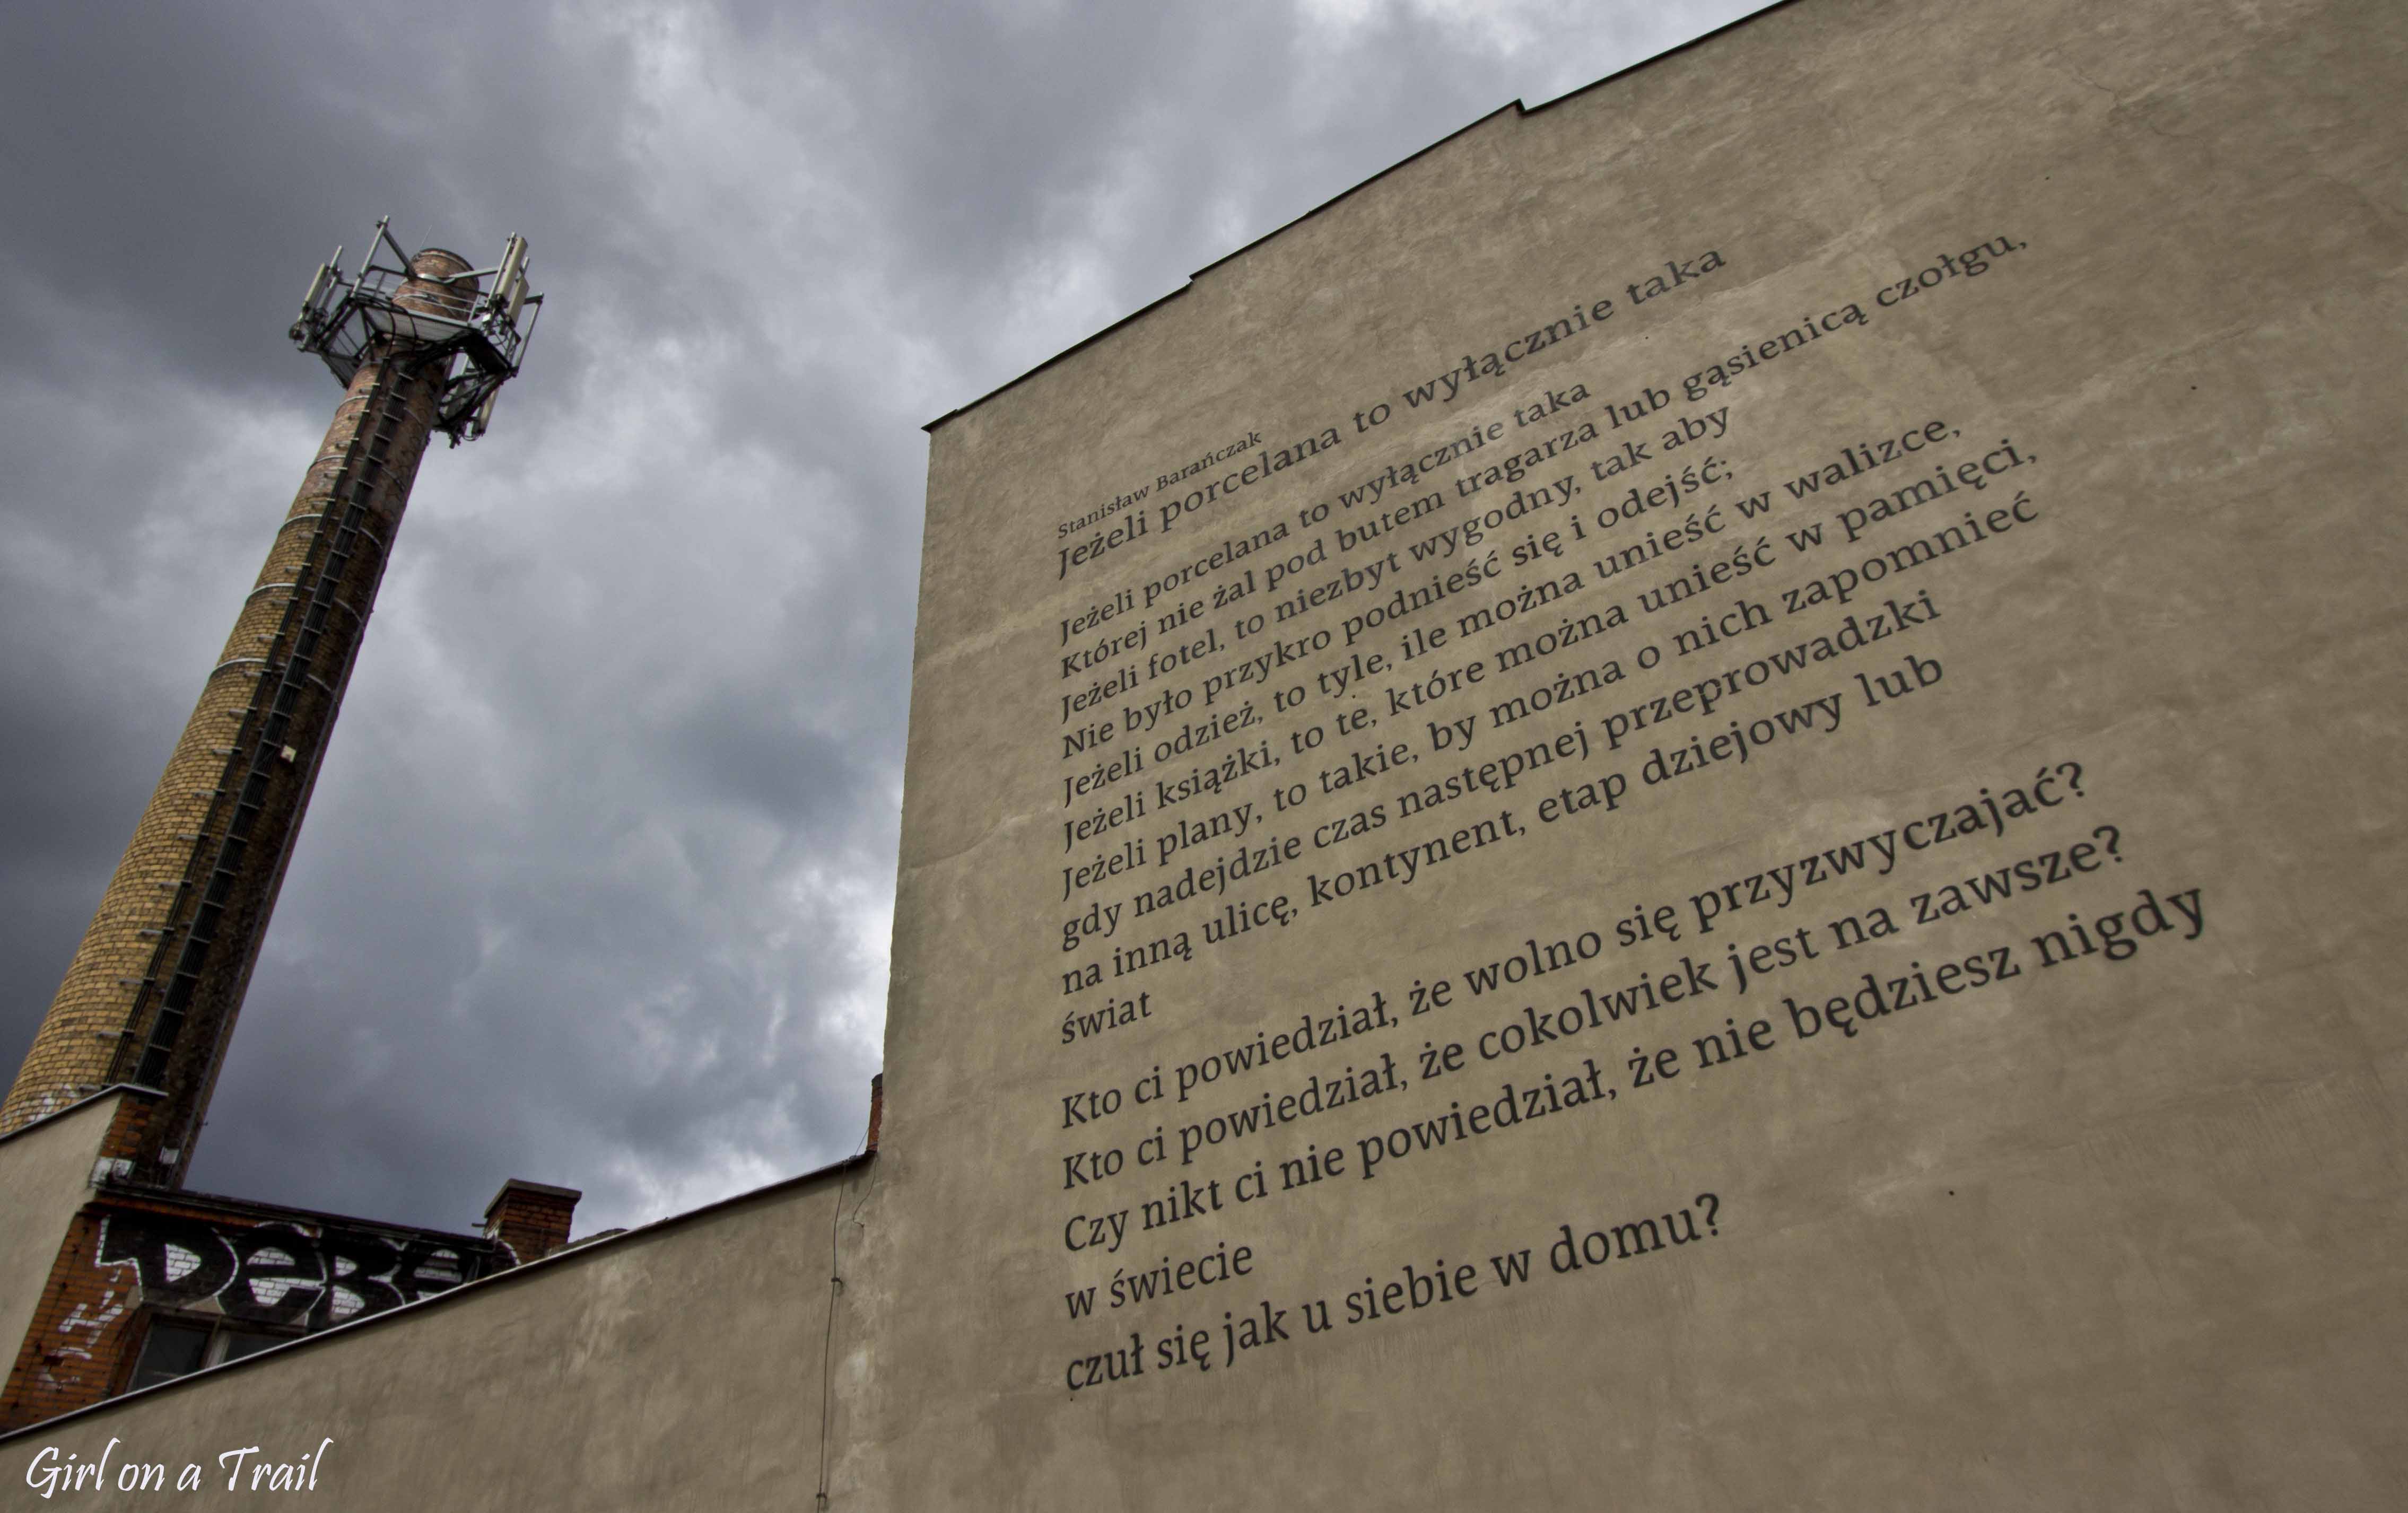 Stanisław Barańczak
Jeżeli porcelana to wyłącznie taka
Jeżeli porcelana to wyłącznie taka
Której nie żal pod butem tragarza lub gąsienicą czołgu,
Jeżeli fotel, to niezbyt wygodny, tak aby
Nie było przykro podnieść się i odejść;
Jeżeli odzież, to tyle, ile można unieść w walizce,
Jeżeli książki, to te, które można unieść w pamięci,
Jeżeli plany, to takie, by można o nich zapomnieć
gdy nadejdzie czas następnej przeprowadzki
na inną ulicę, kontynent, etap dziejowy lub
świat
Kto ci powiedział, że wolno się przyzwyczajać?
Kto ci powiedział, że cokolwiek jest na zawsze?
Czy nikt ci nie powiedział, że nie będziesz nigdy
w świecie
czuł się jak u siebie w domu?
Girl on a Trail